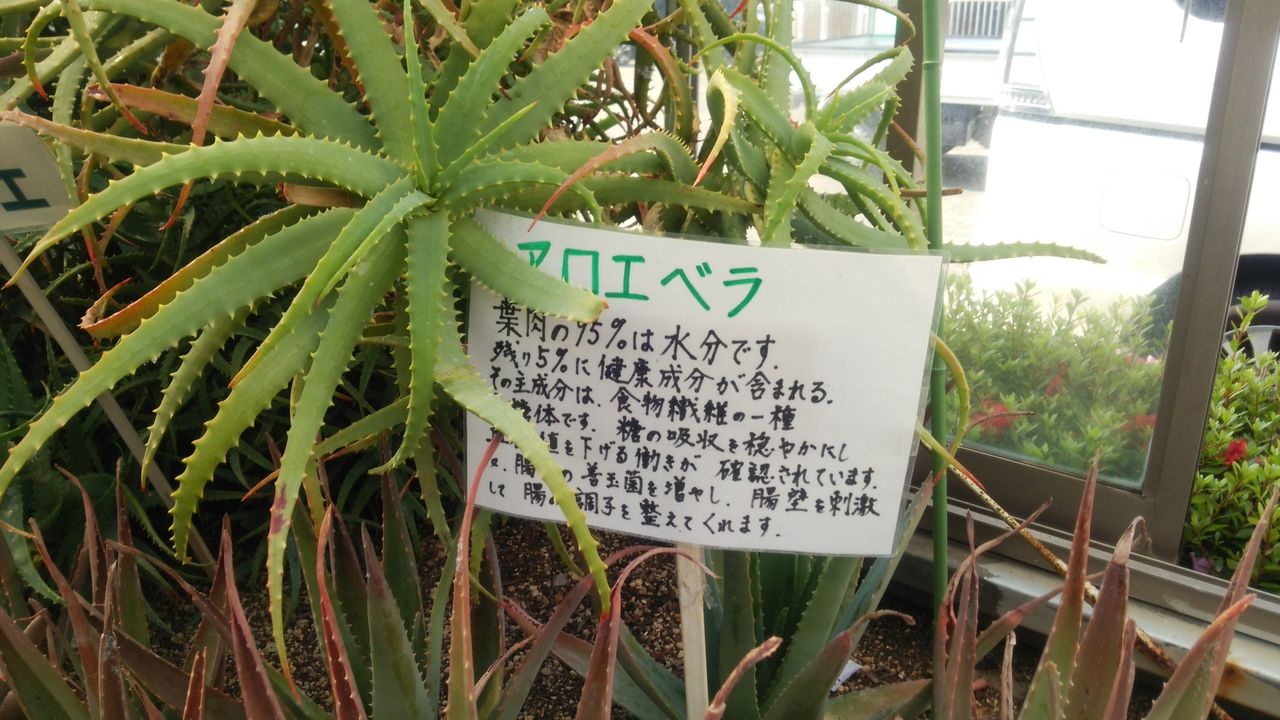 エ
アロエベラ
葉肉の95%は水分です.
残り5%に健康成分が含まれる.
その主成分は、食物繊維の一種
体です. 糖の吸収を穏やかにし
値を下げる働きが 確認されています.
腸 の善玉菌を増やし. 腸壁を刺激
して 腸の調子を整えてくれます.